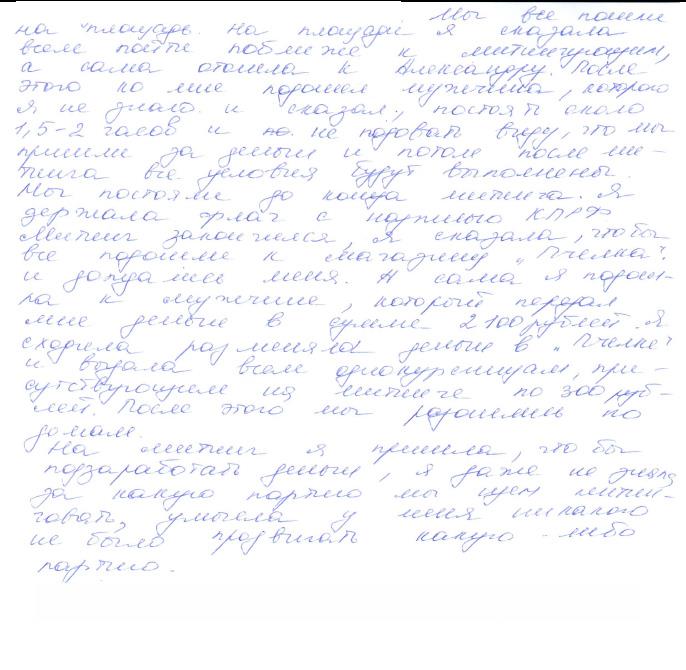 Мы все пошли
на площадь. На площади я сказала
всем пойти поближе к митингующим,
а сама отошла к Александру. После
этого ко мне подошел мужчина, которого
я не знаю и сказал, постоять около
1,5-2 часов и не подовать виду, что мы
пришли за деньги и потом после ми-
тинга все условия будут выполнены.
Мы постояли до конца митинга. Я
держала флаг с надписью КПРФ
Митинг закончился, я сказала, чтобы
все подошли к магазину „Пчелка".
и дождались меня. А сама я подош-
ла к мужчине, который передал
мне деньги в сумме 2100 рублей. Я
сходила разменяла деньги в „Пчелке"
и выдала всем однокурсницам, при-
сутствующим на митинге по 300 руб-
лей. После этого мы разошлись по
домам.
На митинг я пришла, что бы
подзаработать деньги, я даже не знала
за какую партию мы идем митин-
говать, умысла у меня никакого
не было продвигать какую-либо
партию.